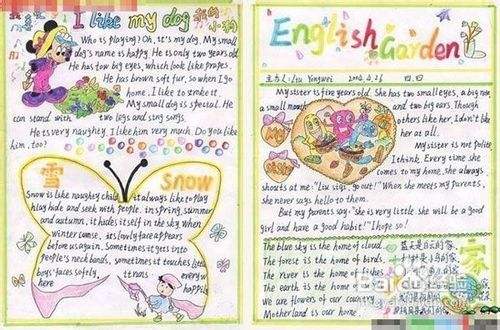 I like my dog 我的小狗
Who is playing? Oh, it's my dog. My small
dog's name is happy. He is only two years old
He has tow big eyes, which look like grapes.
He has brown soft fur, so when I go
home. I like to stroke it.
My small dog is special. He
can stand with two legs and sing sings.
He is very naughty. I like him very much. Do you like
him, too?
雪
Snow
Snow is like naughty child, it always like to play
hide and seek with people. in spring, summer
and autumn, it hides itself in the sky when
winter comse, its lovely face appears
before us again. Sometimes it gets into
people's neck bands, sometimes it touches little
boys' faces softly,
it trans
every
happy
here
English Garden
主办人: Liu Yingwei
四.四
My sister is five years old. She has two small eyes, a big nose,
a small mouth and two big ears. Though
others like her, I don't like
her at all.
My sister is not polite,
I think. Every time she
comes to my home, she always
shouts at me: "Liu go out!" When she meets my parents,
she never says hello to them.
But my parents say: "she is very little she will be a good
girl and have a good habit!" I hope so!
My
sister
The blue sky is the home of cloud.
The forest is the home of birds.
The river is the home of fishes
The earth is the home of
We are flowers of our country
Motherland is our home.
家
蓝天是白云的家
Baidu